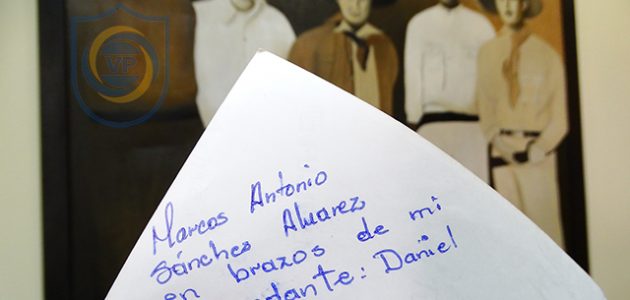 VP
Marcos Antonio
Sánches Alvarez
en brazos de mi
Daniel